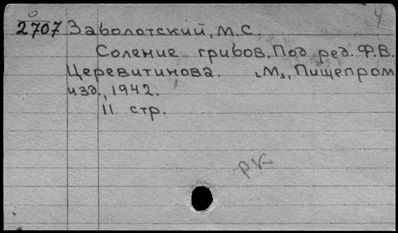 2707 Заболотский, М.С.
Соление грибов. Под ред. Ф.В.
Церевитинова. М., Пищепром
изд., 1942.
11 стр.